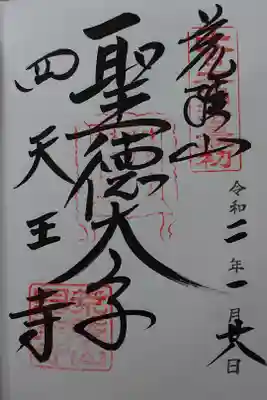 荒陵山
聖徳太子
四天王寺
令和二年一月廿八日